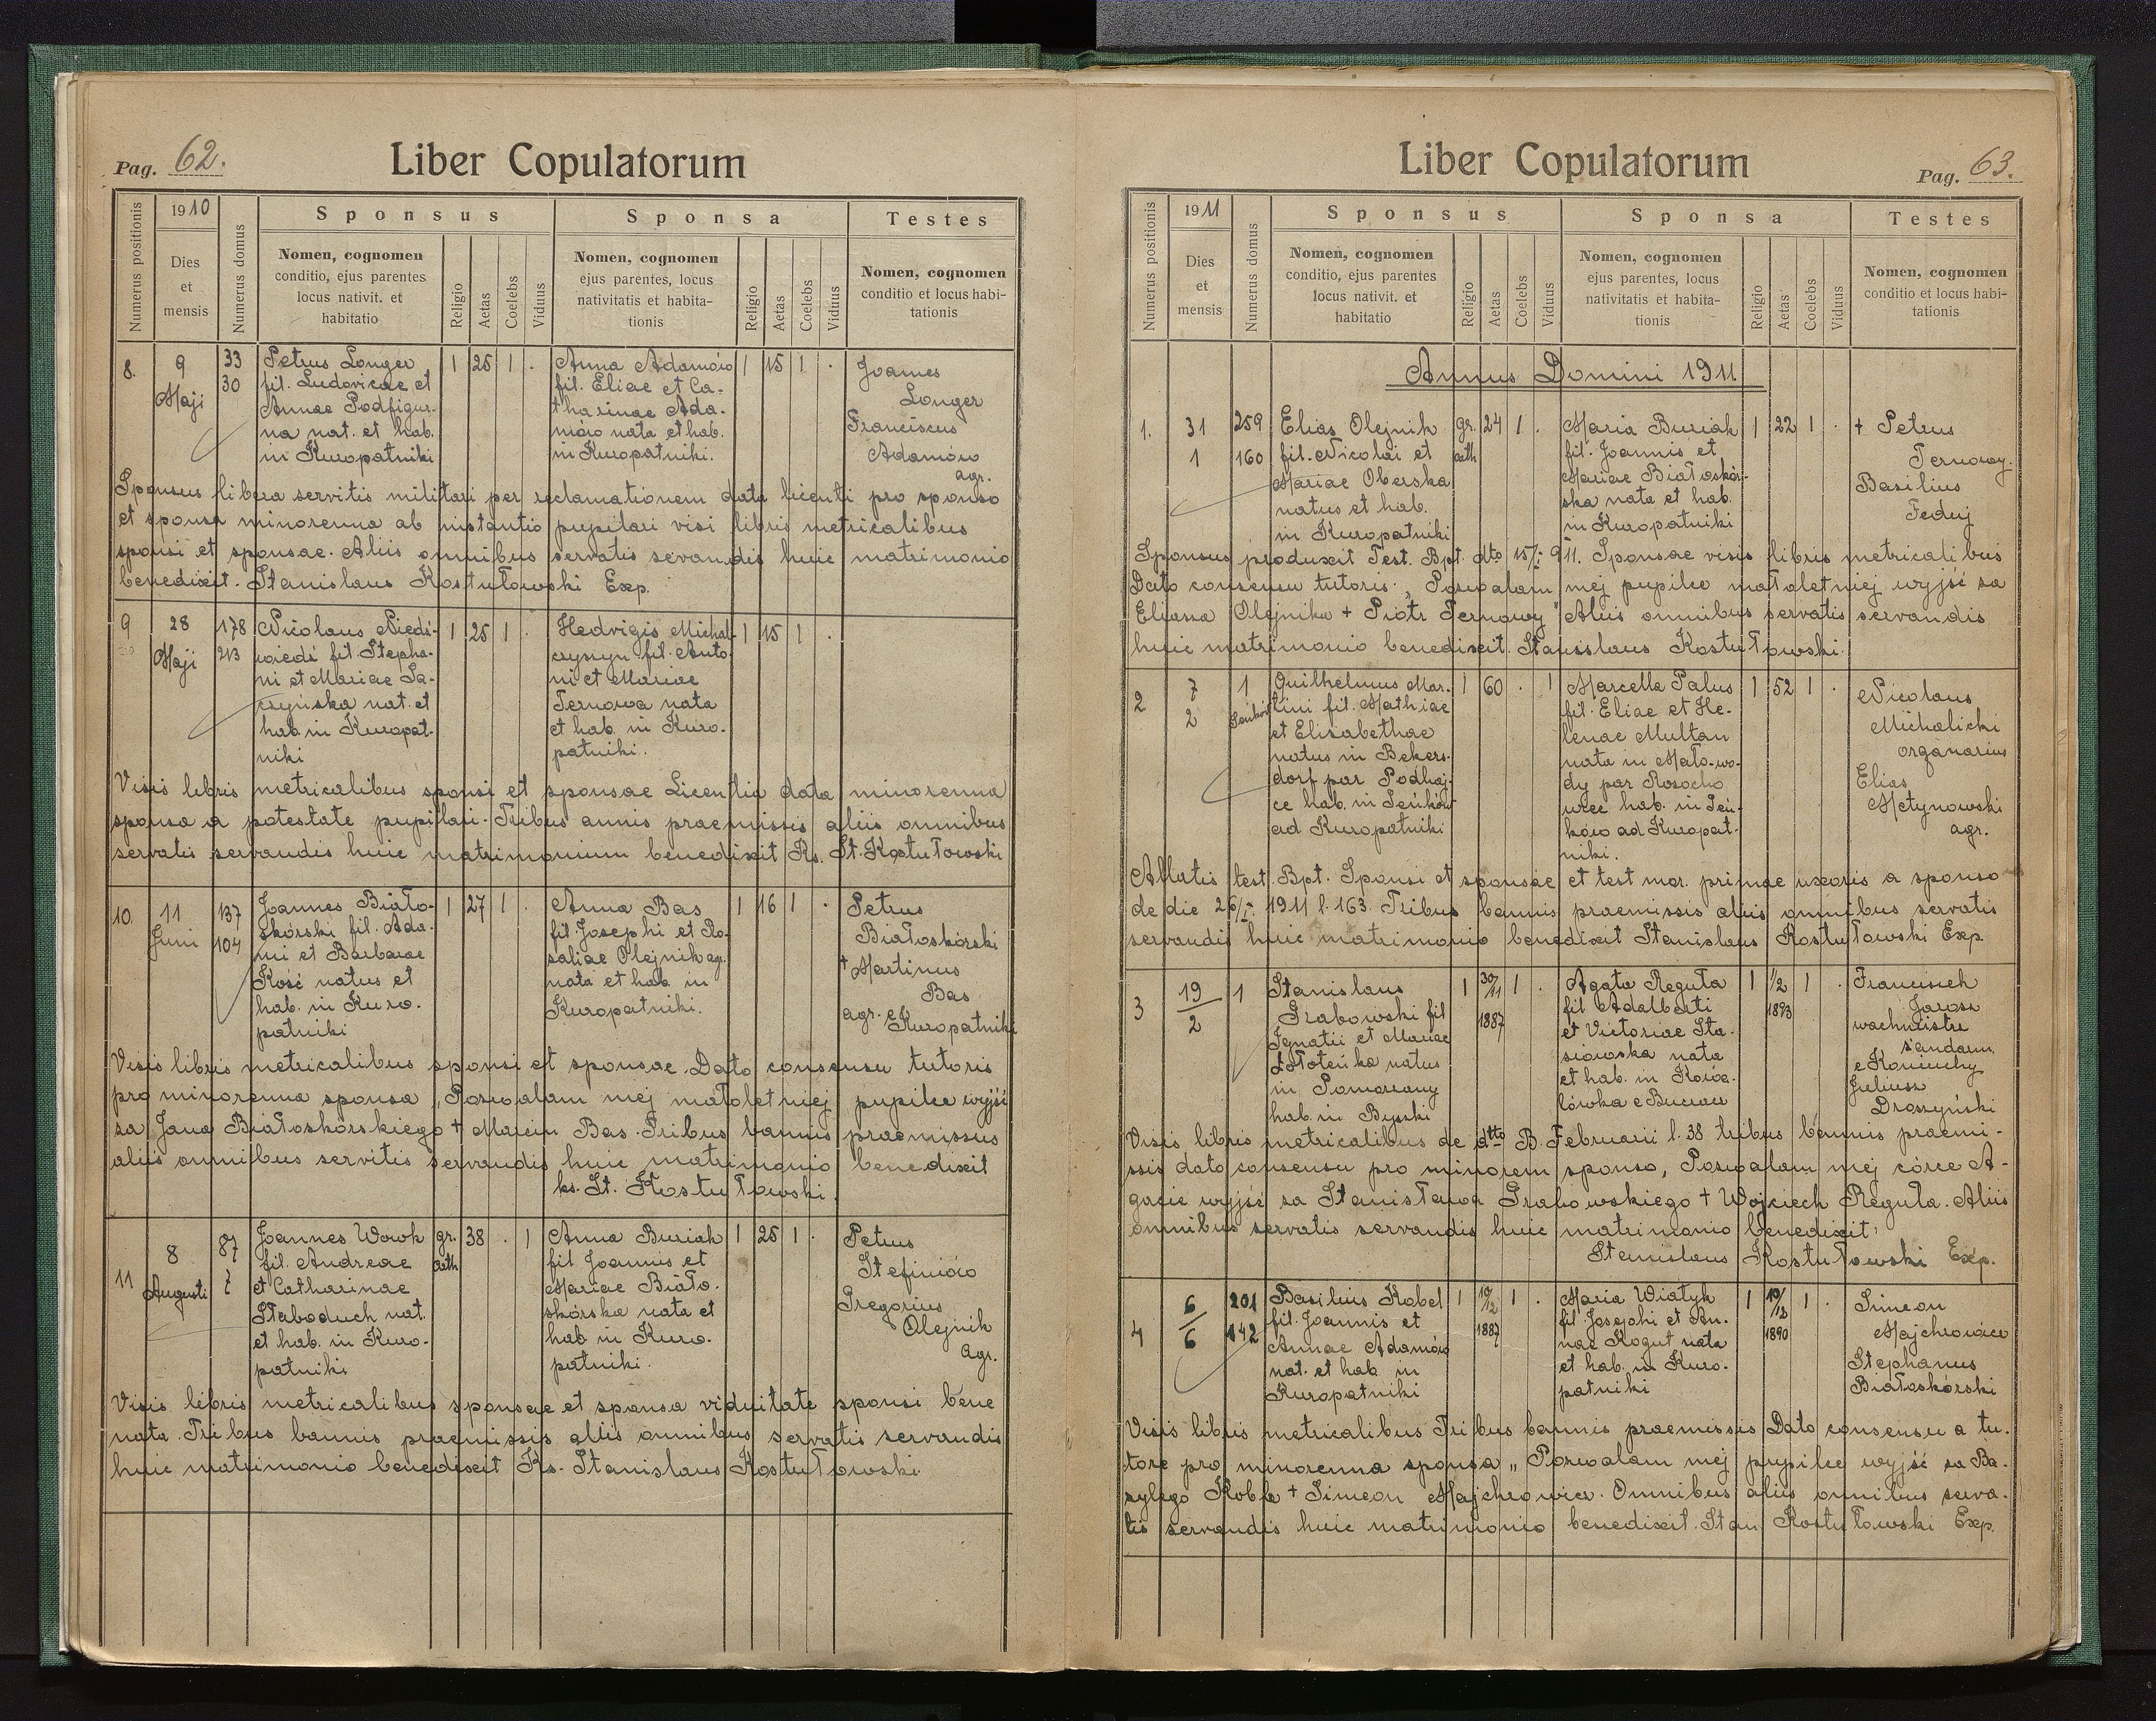 Pag. 62.
Liber Copulatorum
Numerus positionis
1910
Dies
et
mensis
Numerus domus
Sponsus
Nomen, cognomen
conditio, ejus parentes
locus nativit. et
habitatio
Religio
Aetas
Coelebs
Viduus
Sponsa
Nomen, cognomen
ejus parentes, locus
nativitatis et habita-
tionis
Religio
Aetas
Coelebs
Viduus
Testes
Nomen, cognomen
conditio et locus habi-
tationis
8.
9
Maji
33
30
Petrus Longer
fil. Ludovicae et
Annae Podfigur-
na nat. et hab.
in Kuropatniki
1 25 1 .
Anna Adamów
fil. Eliae et Ca-
tharinae Ada-
mów nata et hab.
in Kuropatniki.
1 15 1 .
Joannes
Longer
Franciscus
Adamów
agr.
Sponsus libera servitis militari per reclamationem data licenti pro sponso
et sponsa minorenna ab instantio pupilari visi libris metricalibus
sponsi et sponsae. Aliis omnibus servatis sevandis huic matrimonio
benedixit. Stanislaus Kostułowski Exp.
9
28
Maji
178
213
Nicolaus Niedź-
wiedź fil. Stepha-
ni et Mariae La-
czyńska nat. et
hab. in Kuropat-
niki
1 25 1 .
Hedvigis Michal-
czyszyn fil. Anto-
ni et Mariae
Ternowa nata
et hab. in Kuro-
patniki.
1 15 1 .
Visis libris metricalibus sponsi et sponsae Licentia data minorenna
sponsa a potestate pupillari. Tribus annis praemissis aliis omnibus
servatis servandis huic matrimonium benedixit Ks. St. Kostułowski
10.
11
Juni
137
104
Joannes Biało-
skórski fil. Ada-
mi et Barbarae
Kość natus et
hab. in Kuro-
patniki
1 27 1 .
Anna Bas
fil. Josephi et Ro-
saliae Olejnik agr.
nata et hab. in
Kuropatniki.
1 16 1 .
Petrus
Białoskórski
+ Martinus
Bas
agr. e
Kuropatniki
Visis libris metricalibus sponsi et sponsae. Dato consensu tutoris
pro minorenna sponsa „Pozwalam mej małoletniej pupilce wyjść
za Jana Białoskórskiego + Marcin Bas. Tribus bannis praemissus
aliis omnibus servitis servandis huic matrimonio benedixit
ks. St. Kostułowski.
11
8
Augusti
87
7
Joannes Wowk
fil. Andreae
et Catharinae
Słaboduch nat.
et hab. in Kuro-
patniki
gr. 38 . 1
cath
Anna Buriak
fil Joannis et
Mariae Biało-
skórska nata et
hab in Kuro-
patniki.
1 25 1 .
Petrus
Stefinów
Gregorius
Olejnik
agr.
Visis libris metricalibus sponsae et sponsa viduitate sponsi bene
nata. Tribus bannis praemissis aliis omnibus servatis servandis
huic matrimonio benedixit Ks. Stanislaus Kostułowski.
Liber Copulatorum
Pag. 63.
Numerus positionis
1911
Dies
et
mensis
Numerus domus
Sponsus
Nomen, cognomen
conditio, ejus parentes
locus nativit. et
habitatio
Religio
Aetas
Coelebs
Viduus
Sponsa
Nomen, cognomen
ejus parentes, locus
nativitatis et habita-
tionis
Religio
Aetas
Coelebs
Viduus
Testes
Nomen, cognomen
conditio et locus habi-
tationis
Annus Domini 1911
1.
31
1
259
160
Elias Olejnik
fil. Nicolai et
Mariae Oberska
natus et hab.
in Kuropatniki
gr. 24 1 .
cath
Maria Buriak
fil. Joannis et
Mariae Białoskór-
ska nata et hab.
in Kuropatniki
1 22 1 .
+ Petrus
Ternowy.
Basilius
Feduj
Sponsus produxit Test. Bpt. dto 15/I 911. Sponsae visis libris metricalibus
Dato consensu tutoris: „Pozwalam mej pupilce małoletniej wyjść za
Eliasza Olejnika + Piotr Ternowy" Aliis omnibus servatis servandis
huic matrimonio benedixit. Stanislaus Kostułowski.
2
7
2
1
Seńków
Quilhelmus Mar-
tini fil. Mathiae
et Elisabethae
natus in Bekers-
dorf par Podhaj-
ce hab. in Seńków
ad Kuropatniki
1 60 . 1
Marcella Palus
fil. Eliae et He-
lenae Multan
nata in Mało-wo-
dy par Rosocho
wce hab. in Seń-
ków ad Kuropat-
niki.
1 52 1 .
Nicolaus
Michalicki
organarius
Elias
Metynowski
agr.
Allatis test. Bpt. Sponsi et sponsae et test mor. primae uxoris a sponso
de die 26/I. 1911 l. 163. Tribus bannis praemissis aliis omnibus servatis
servandis huic matrimonio benedixit Stanislaus Kostułowski Exp.
3
19
2
1
Stanislaus
Grabowski fil
Ignatii et Mariae
Złoteńka natus
in Pomorzany
hab. in Byszki
1 30/11 1 .
1887
Agata Reguła
fil Adalberti
et Victoriae Sta-
siowska nata
et hab. in Kowa-
lówka e Buczacz
1 1/2 1 .
1893
Franciszek
Jarosz
wachmistrz
żandarm.
e Koniuchy
Juliusz
Droszyński
Visis libris metricalibus de dtto B. Februarii l. 38 tribus bannis praemi-
ssis dato consensu pro minorem sponso, Pozwalam mej córce A-
gacie wyjść za Stanisława Grabowskiego + Wojciech Reguła. Aliis
omnibus servatis servandis huic matrimonio benedixit
Stanislaus Kostułowski Exp.
4
6
6
201
142
Basilius Kobel
fil. Joannis et
Annae Adamów
nat. et hab in
Kuropatniki
1 10/12 1 .
1887
Maria Wiatyk
fil. Josephi et An-
nae Kogut nata
et hab. in Kuro-
patniki
1 10/12 1 .
1890
Simeon
Majchrowicz
Stephanus
Białoskórski
Visis libris metricalibus Tribus bannis praemissis Dato consensu a tu-
tore pro minorenna sponsa „Pozwalam mej pupilce wyjść za Ba-
zylego Kobla + Simeon Majchrowicz. Omnibus aliis omnibus serva-
tis servandis huic matrimonio benedixit. Stan Kostułowski Exp.